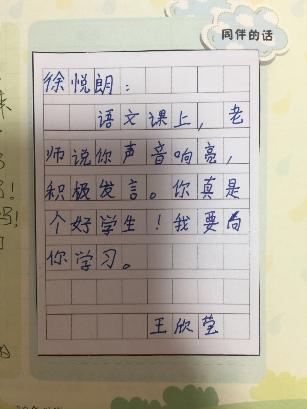 同伴的话
徐悦朗：
语文课上，老
师说你声音响亮，
积极发言。你真是
个好学生！我要向
你学习。
王欣莹